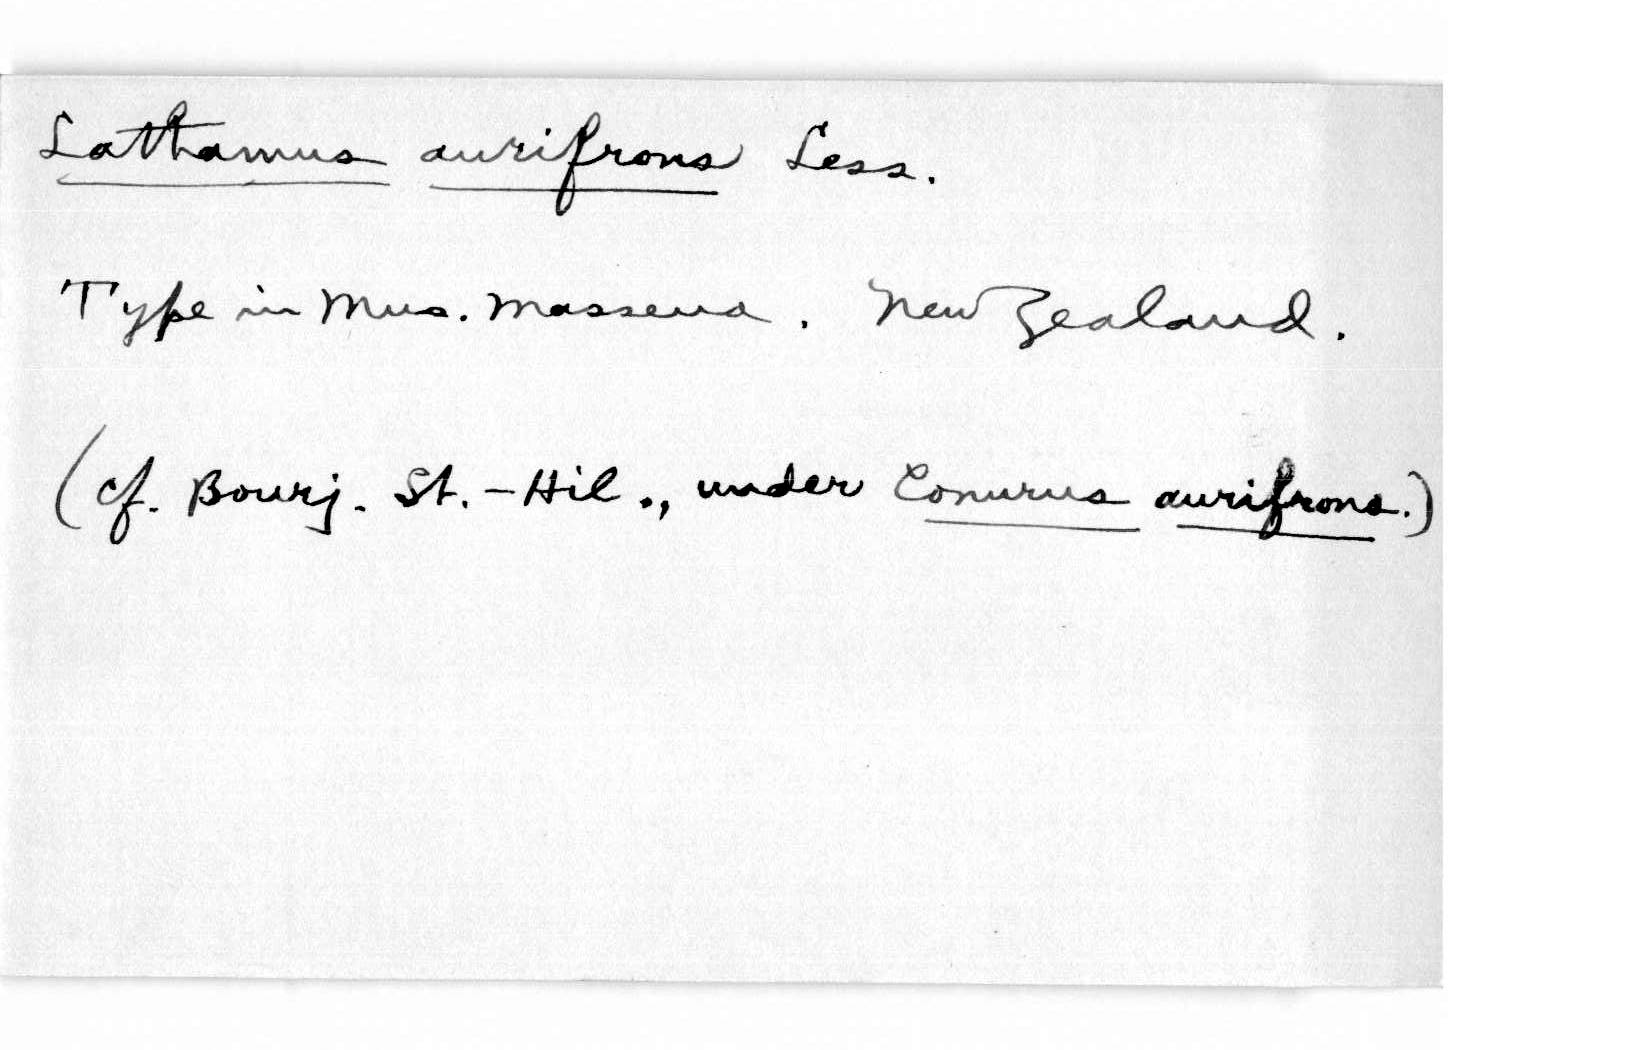 Lathamus aurifrons Less.
Type in Mus. Massena. New Zealand.
(cf. Bourj. St.-Hil., under Conurus aurifrons.)